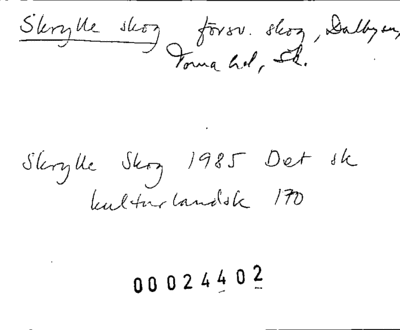 Skrylle skog försv. skog, Dalby sn,
Torna hd, Sk.
Skrylle Skog 1985 Det sk
kulturlandsk 170
00024402